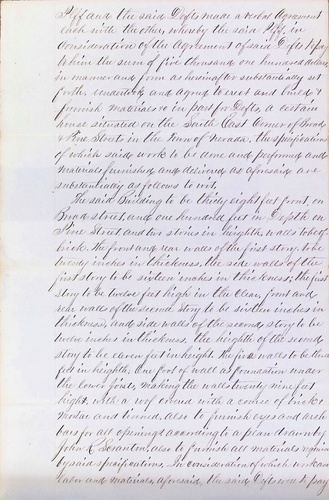 Plff and the said Defts made a verbal Agreement
each with the other, whereby the said Plff, in
consideration of the Agreement of said Defts to pay
to him the sum of five thousand one hundred dollars
in manner and form as hereinafter substantially set
forth, undertook and agreed to erect and build &
furnish materials in part for Defts, a certain
house situated on the South East Corner of Broad
& Pine Streets in the Town of Nevada, the specifications
of which said work to be done and performed and
materials furnished and delivered as aforesaid are
substantially as follows to wit,
The said Building to be thirty eight feet front, on
Broad street, and one hundred feet in Depth on
Pine Street and two stories in heighth, walls to be of
brick. The front and rear walls of the first story to be
twenty inches in thickness, the side walls of the
first story to be sixteen inches in thickness; the first
story to be twelve feet high in the clear, front and
rear walls of the second story to be sixteen inches in
thickness, and side walls of the second story to be
twelve inches in thickness, the heighth of the second
story to be eleven feet in height. The fire walls to be three
feet in heighth. One foot of wall as foundation under
the lower joist, making the walls twenty nine feet
high, with a roof covered with a course of brick &
mortar and tinned, also to furnish eyes and
bars for all openings according to a plan drawn by
John Scranton, also to furnish all materials required
by said specifications. In consideration of which work and
labor and materials, aforesaid, the said Defts were to pay